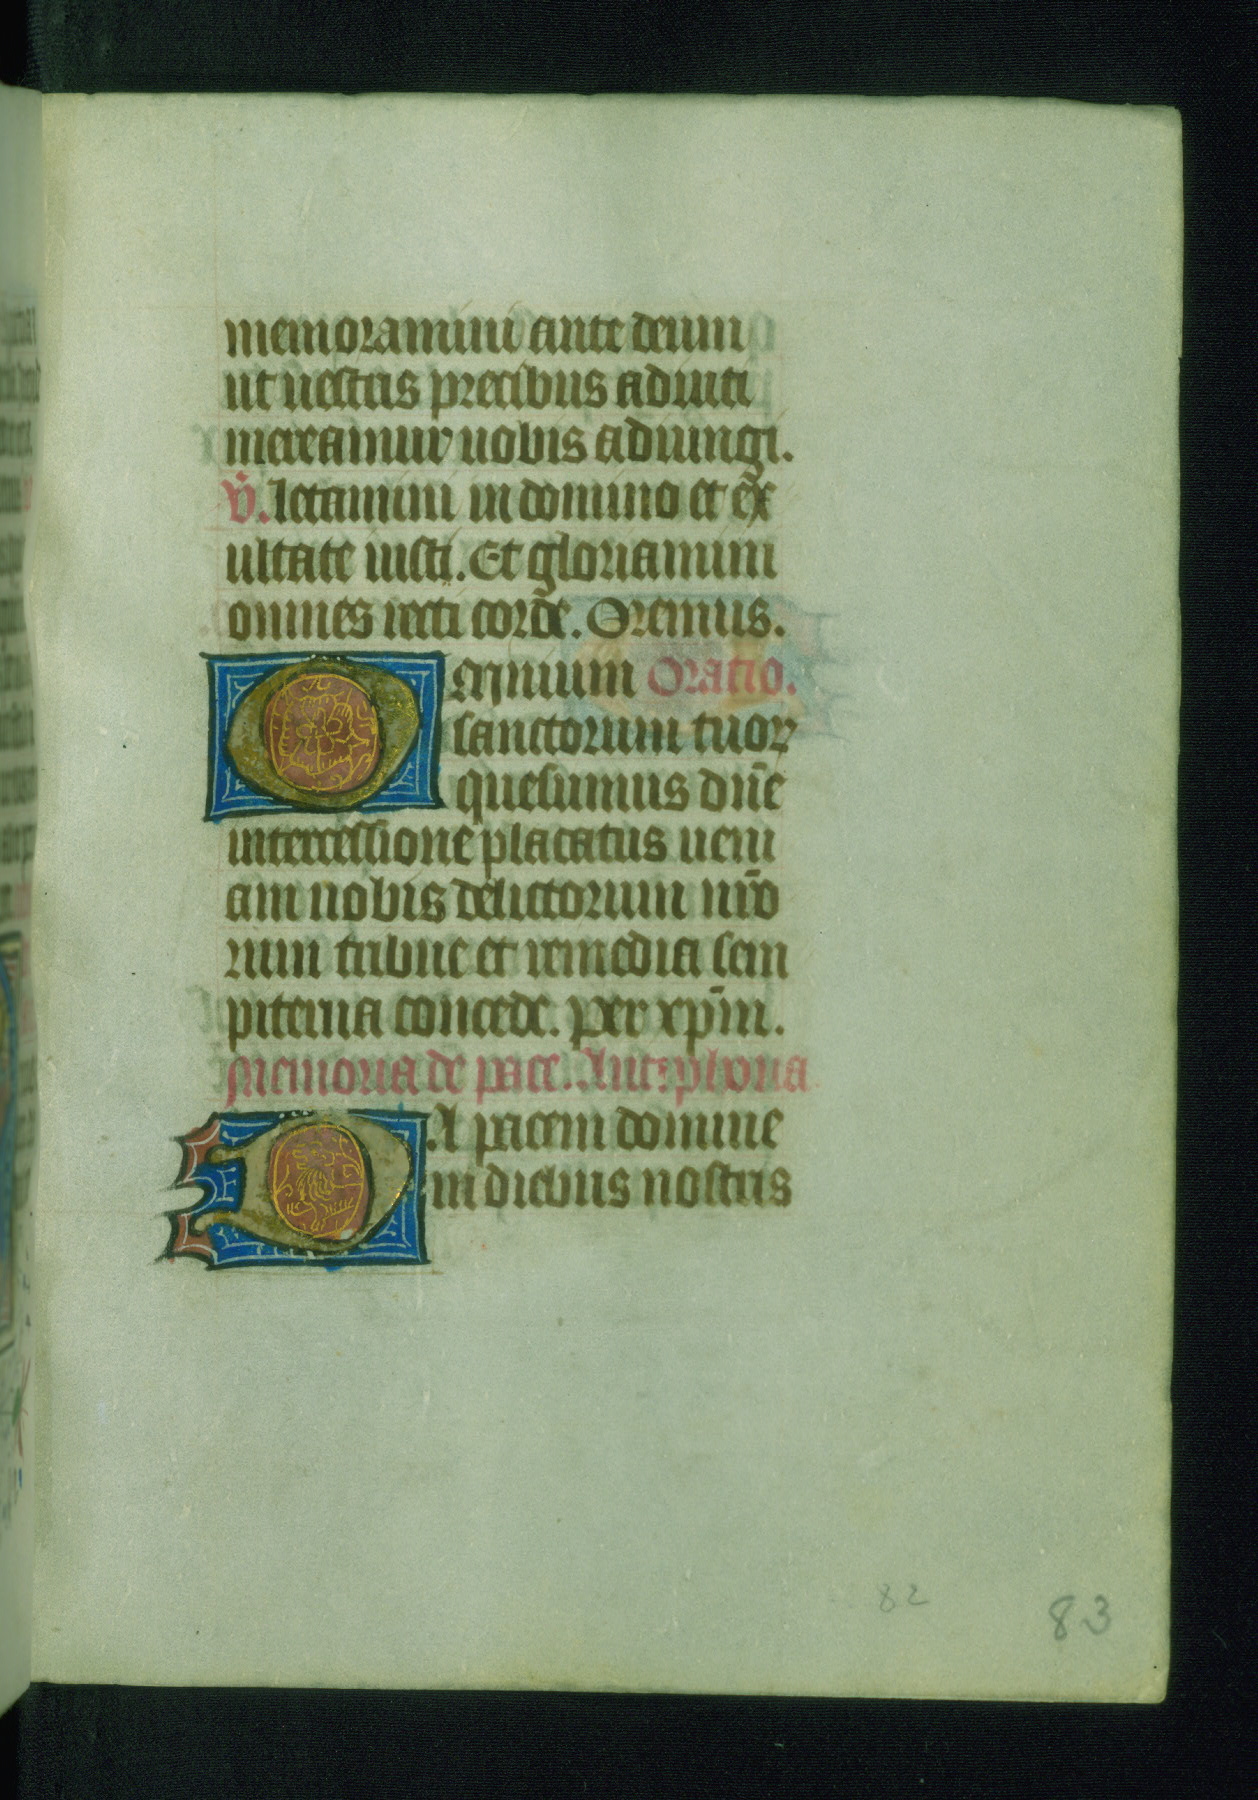 memoramini ante deum
ut uestris precibus adiuti
mereamur uobis adiungi.
V̇. letamini in domino et ex
ultate iusti. Et gloriamini
omnes recti corde. Oremus.
Omnium Oratio.
sanctorum tuoꝝ
quesumus dn̄e
intercessione placatus ueni
am nobis delictorum nr̄o
rum tribue et remedia sem
piterna concede. per xp̄m.
Memoria de pace. Antiphona
DA pacem domine
in diebus nostris
82
83